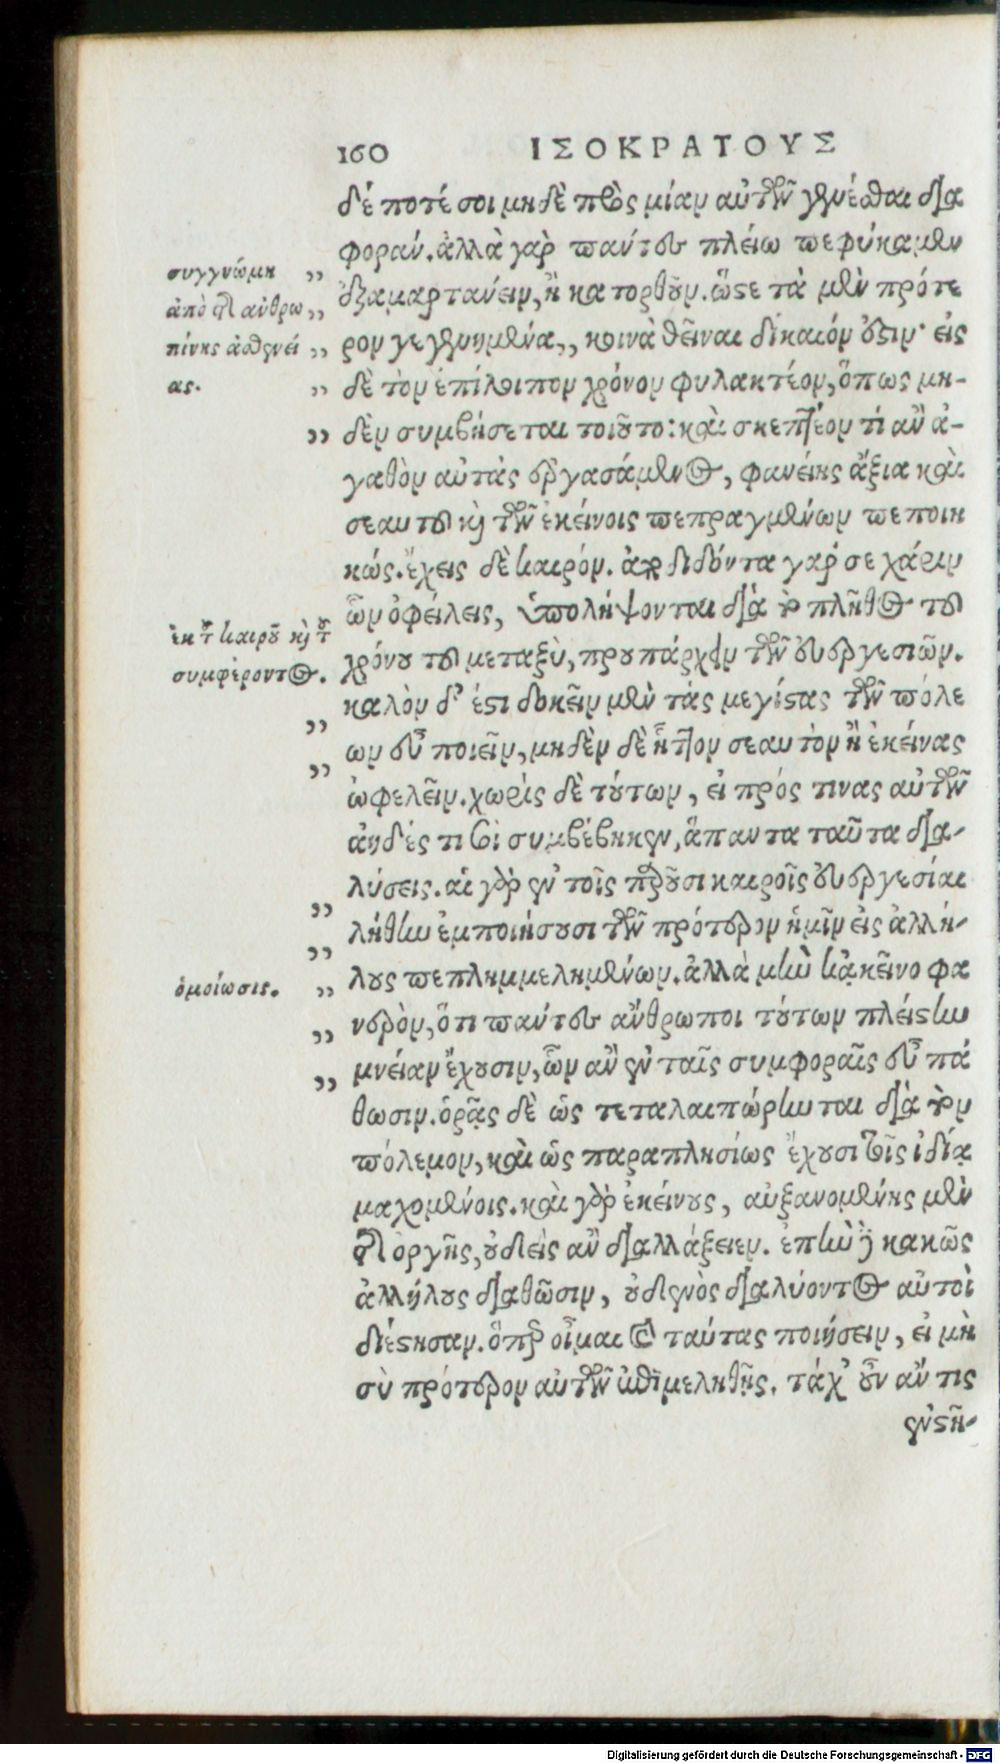 160 ΙΣΟΚΡΑΤΟΥΣ
δέ ποτέ σοι μηδὲ πρὸς μίαν αὐτῶν γενέσθαι δια
φοράν. ἀλλὰ γὰρ πάντες πλείω πεφύκαμεν
συγγνώμη ,,
ἐξαμαρτάνειν, ἢ κατορθοῦν. ὥστε τὰ μὲν πρότε
ἀπὸ τῆς ἀνθρω ,,
ρον γεγενημένα,, κοινὰ θεῖναι δίκαιόν ἐστιν· εἰς
πίνης ἀσθενεί ,,
δὲ τὸν ἐπίλοιπον χρόνον φυλακτέον, ὅπως μη-
ας. ,,
δὲν συμβήσεται τοιοῦτο: καὶ σκεπτέον τί ἂν ἀ-
,,
γαθὸν αὐτὰς ἐργασάμενος, φανείης ἄξια καὶ
σεαυτοῦ καὶ τῶν ἐκείνοις πεπραγμένων πεποιη
κώς. ἔχεις δὲ καιρόν. ἀποδιδόντα γάρ σε χάριν
ὧν ὀφείλεις, ὑπολήψονται διὰ τὸ πλῆθος τοῦ
ἐκ τοῦ καιροῦ καὶ τοῦ
χρόνου τοῦ μεταξὺ, προυπάρχειν τῶν εὐεργεσιῶν.
συμφέροντος.
καλὸν δ' ἐστὶ δοκεῖν μὲν τὰς μεγίστας τῶν πόλε
,,
ων εὖ ποιεῖν, μηδὲν δὲ ἧττον σεαυτὸν ἢ ἐκείνας
,,
ὠφελεῖν. χωρὶς δὲ τούτων, εἰ πρός τινας αὐτῶν
ἀηδές τι σοὶ συμβέβηκεν, ἅπαντα ταῦτα δια-
λύσεις. αἱ γὰρ ἐν τοῖς παροῦσι καιροῖς εὐεργεσίαι
,,
λήθην ἐμποιήσουσι τῶν πρότερον ἡμῖν εἰς ἀλλή-
,,
λους πεπλημμελημένων. ἀλλὰ μὴν κἀκεῖνο φα
ὁμοίωσις. ,,
νερὸν, ὅτι πάντες ἄνθρωποι τούτων πλείστην
,,
μνείαν ἔχουσιν, ὧν ἂν ἐν ταῖς συμφοραῖς εὖ πά
,,
θωσιν. ὁρᾷς δὲ ὡς τεταλαιπώρηνται διὰ τὸν
πόλεμον, καὶ ὡς παραπλησίως ἔχουσι τοῖς ἰδίᾳ
μαχομένοις. καὶ γὰρ ἐκείνους, αὐξανομένης μὲν
τῆς ὀργῆς, οὐδεὶς ἂν διαλλάξειεν. ἐπὴν δὲ κακῶς
ἀλλήλους διαθῶσιν, οὐδενὸς διαλύοντος αὐτοὶ
διέστησαν. ὅπερ οἶμαι καὶ ταύτας ποιήσειν, εἰ μὴ
σὺ πρότερον αὐτῶν ἐπιμεληθῇς. τάχ' οὖν ἄν τις
ἐνστῆ-
Digitalisierung gefördert durch die Deutsche Forschungsgemeinschaft - DFG